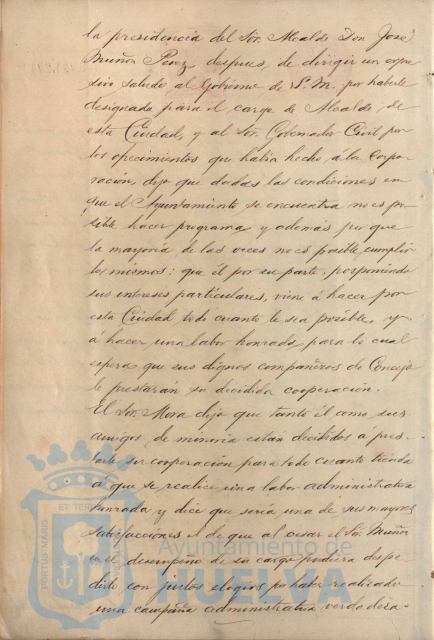 la presidencia del Sor. Alcalde Don José
Muñoz Pérez, despues, de dirigir un expre
sivo saludo al Gobierno de S. M. por haberle
designado para el cargo de Alcalde, de
esta Ciudad, y al Sor. Gobernador Civil por
los ofrecimientos que habia hecho, á la Corpo-
ración, dijo que dadas las condiciones en
que el Ayuntamiento se encuentra no es po-
sible hacer programa y además por que
la mayoria de las veces no es posible cumplir
los mismos: que él por su parte, posponiendo
sus intereses particulares, viene á hacer por
esta Ciudad todo cuanto le sea posible, y
á hacer una labor honrada, para lo cual
espera que sus dignos compañeros de Concejo
le prestarán su decidida cooperación.
El Sor. Mora dijo que tanto él como sus
amigos de minoria están decididos á pres-
tarle su cooperación para todo cuanto tienda
á que se realice una labor administrativa
honrada y dice que seria una de sus mayores
satisfacciones el de que al cesar el Sor. Muñoz
en el desempeño de su cargo pudiera despe
dirle con justos elogios por haber realizado
una campaña administrativa verdadera-
PORTUS MARIS ET TERRAE
Ayuntamiento de
HUELVA